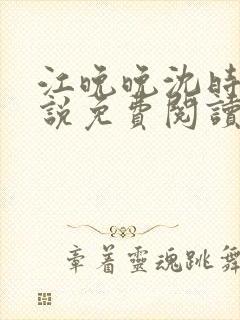 江晚晚沈时
說免費閱讀
章着靈魂跳舞